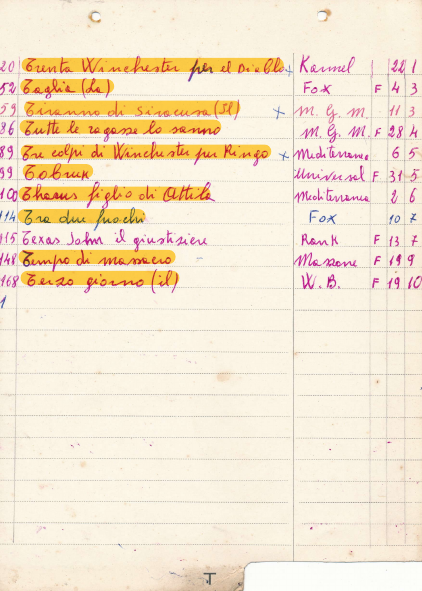 20 Trenta Winchester per el Diablo x Karmel 22 1
52 Taglia (La) Fox F 4 3
59 Tiranno di Siracusa (Il) x M. G. M. 11 3
86 Tutte le ragazze lo sanno M. G. M. F 28 4
89 Tre colpi di Winchester per Ringo x Mediterranea 6 5
99 Tobruk Universal F 31 5
100 Tharus figlio di Attila Mediterranea 2 6
114 Tra due fuochi Fox 10 7
115 Texas John il giustiziere Rank F 13 7
148 Tempo di massacro F 19 9
168 Terzo giorno (il) W. B. F 19 10
1
T